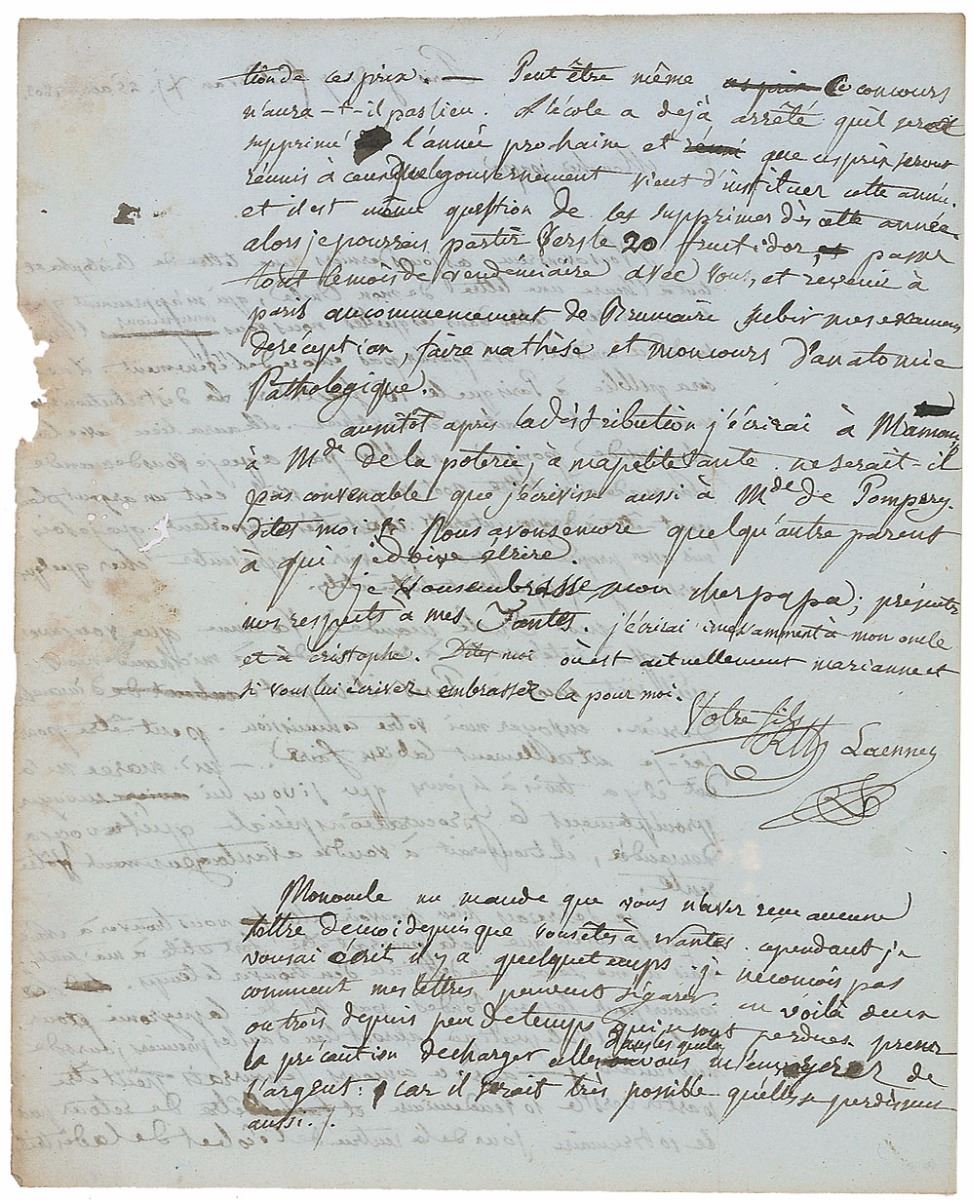 tion de ces prix. — Peut être même ces prix Ce concours
n'aura-t-il pas lieu. L'école a dejà arrêté qu'il serait
supprimé l'année prochaine et réuni que ces prix seront
réunis à ceux que le gouvernement vient d'instituer cette année.
et il est même question de les supprimer dès cette année.
alors je pourrais partir vers le 20 fructidor, et passer
tout le mois de vendemiaire avec vous, et revenir à
paris au commencement de Brumaire subir mes examens
de réception faire ma thèse et mon cours d'anatomie
Pathologique.
aussitôt après la distribution j'écrirai à Maman,
à Mde de la poterie, à ma petite tante. ne serait-il
pas convenable que j'écrivisse aussi à Mde de Pompery.
dites moi si nous avons encore quelqu'autre parent
à qui je doive écrire.
je vous embrasse mon cher papa; présentez
mes respects à mes Tantes. j'écrirai incessamment à mon oncle
et à cristophe. Dites moi où est actuellement marianne et
si vous lui écrivez embrassez la pour moi.
Votre fils
RTH Laennec
Mon oncle me mande que vous n'avez reçu aucune
lettre de moi depuis que vous êtes à nantes. cependant je
vous ai écrit il y a quelque temps. je ne conçois pas
comment mes lettres peuvent s'égarer. en voilà deux
ou trois depuis peu de temps qui se sont perdues. prenez
la précaution de charger celles dans lesquelles vous m'enverrez de
l'argent: car il serait très possible qu'elles se perdissent
aussi.